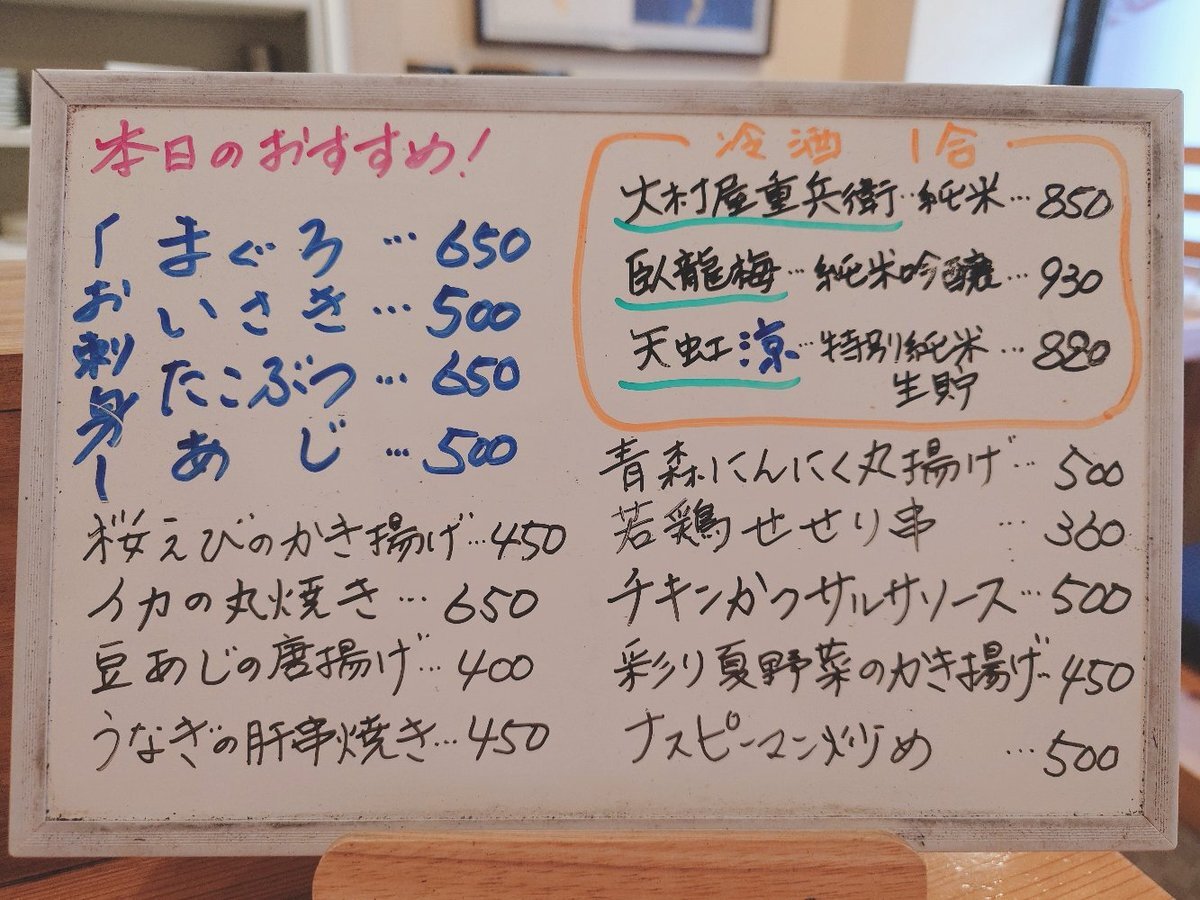 本日のおすすめ!
ーお刺身ー
まぐろ…650
いさき…500
たこぶつ…650
あじ…500
桜えびのかき揚げ…450
イカの丸焼き…650
豆あじの唐揚げ…400
うなぎの肝串焼き…450
冷酒 1合
大村屋重兵衛…純米…850
臥龍梅…純米吟醸…930
天虹涼…特別純米…880
生貯
青森にんにく丸揚げ…500
若鶏せせり串…360
チキンかつサルサソース…500
彩り夏野菜のかき揚げ…450
ナスピーマン炒め…500